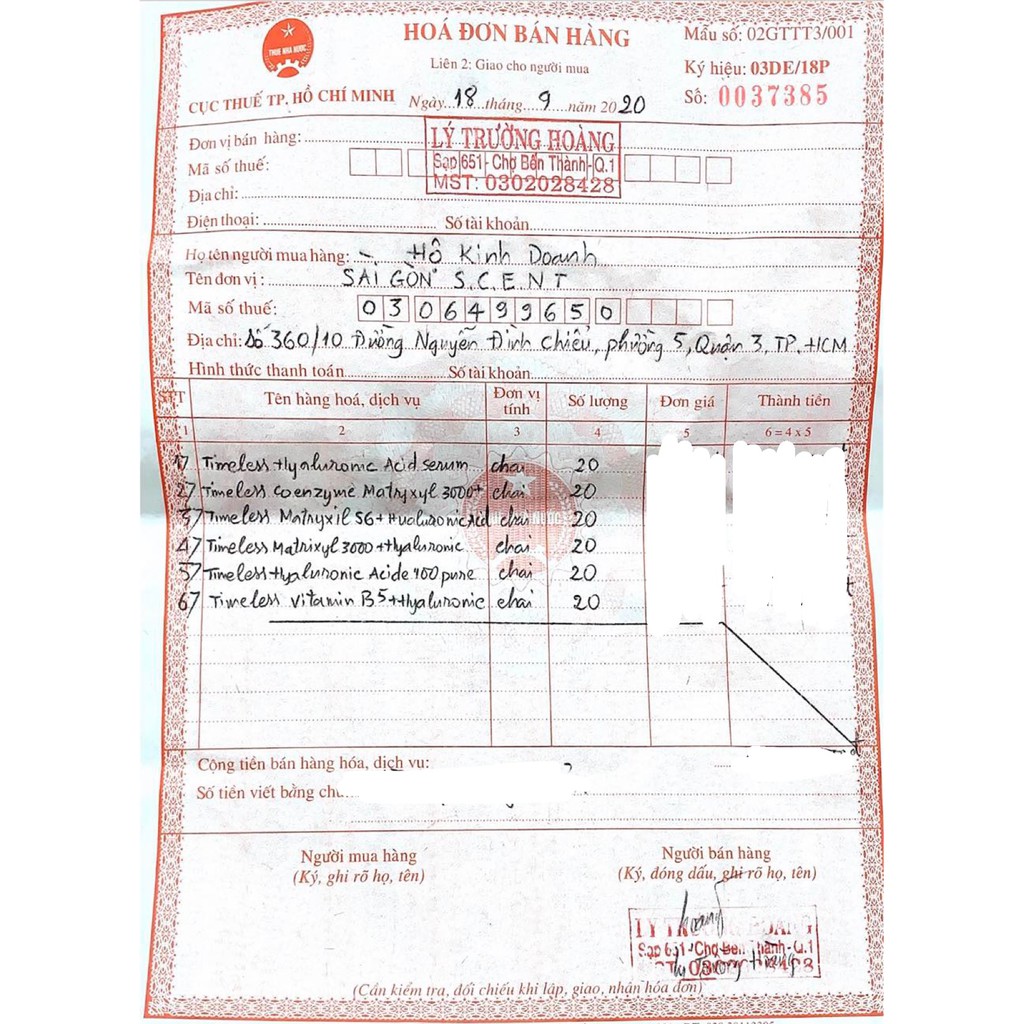 HOÁ ĐƠN BÁN HÀNG
Mẫu số: 02GTTT3/001
THUẾ NHÀ NƯỚC
Liên 2: Giao cho người mua
Ký hiệu: 03DE/18P
CỤC THUẾ TP. HỒ CHÍ MINH
Ngày 18 tháng 9 năm 2020
Số: 0037385
Đơn vị bán hàng:
LÝ TRƯỜNG HOÀNG
Mã số thuế:
Sạp 651 - Chợ Bến Thành - Q.1
MST: 0302028428
Địa chỉ:
Điện thoại: Số tài khoản
Họ tên người mua hàng: - Hộ Kinh Doanh
Tên đơn vị: SÀI GÒN S.C.E.N.T
Mã số thuế: 0306499650
Địa chỉ: Số 360/10 Đường Nguyễn Đình Chiểu, phường 5, Quận 3, TP. HCM
Hình thức thanh toán Số tài khoản
STT Tên hàng hoá, dịch vụ Đơn vị tính Số lượng Đơn giá Thành tiền
1 2 3 4 5 6 = 4 x 5
1/ Timeless Hyaluronic Acid serum chai 20
2/ Timeless Coenzyme Matryxyl 3000+ chai 20
3/ Timeless Matryxil S6+Hualuronic Acid chai 20
4/ Timeless Matrixyl 3000 +Hyaluronic chai 20
5/ Timeless Hyaluronic Acide 100 pure chai 20
6/ Timeless Vitamin B5+Hyaluronic chai 20
Cộng tiền bán hàng hóa, dịch vụ:
Số tiền viết bằng
Người mua hàng
Người bán hàng
(Ký, ghi rõ họ, tên)
(Ký, đóng dấu, ghi rõ họ, tên)
Hoàng
LÝ TRƯỜNG HOÀNG
Sạp 651 - Chợ Bến Thành - Q.1
Lý Trường Hoàng
(Cần kiểm tra, đối chiếu khi lập, giao, nhận hóa đơn)